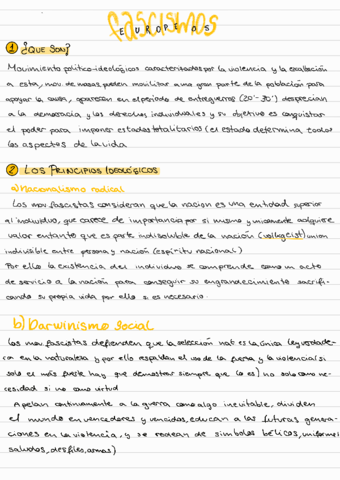 fascismos
EUROPEOS
1 ¿QUE SON?
Movimiento político-ideológicos caracterizados por la violencia y la exaltación
a esta, mov. de masas, pueden movilitar a una gran parte de la población para
apoyar la causa, aparecen en el periodo de entreguerras (20'-30') desprecian
a la democracia y los derechos individuales y su objetivo es conquistar
el poder para imponer estados totalitarios (el estado determina todos
los aspectos de la vida
2 LOS PRINCIPIOS IDEOLÓGICOS
a) Nacionalismo radical
Los mov. fascistas consideran que la nacion es una entidad superior
al individuo, que carece de importancia por si mismo y unicamente adquiere
valor entanto que es parte indisoluble de la nación (volkgeist) union
indivisible entre persona y nación (espiritu nacional)
Por ello la existencia del individuo se comprende como un acto
de servicio a la nación para conseguir su engrandecimiento sacrifi-
cando su propia vida por ello si es necesario
b) Darwinismo social
Los mov fascistas defienden que la selección nat es la única ley verdade-
ra en la naturaleza y por ello respaldan el uso de la fuerza y la violencia (si
solo el más fuerte hay que demostrar siempre que lo es) no solo como ne-
cesidad si no como virtud
Apelan continuamente a la guerra como algo inevitable, dividen
el mundo en vencedores y vencidos, educan a las futuras genera-
ciones en la violencia, y se rodean de simbolos bélicos, uniformes
saludos, desfiles, armas)